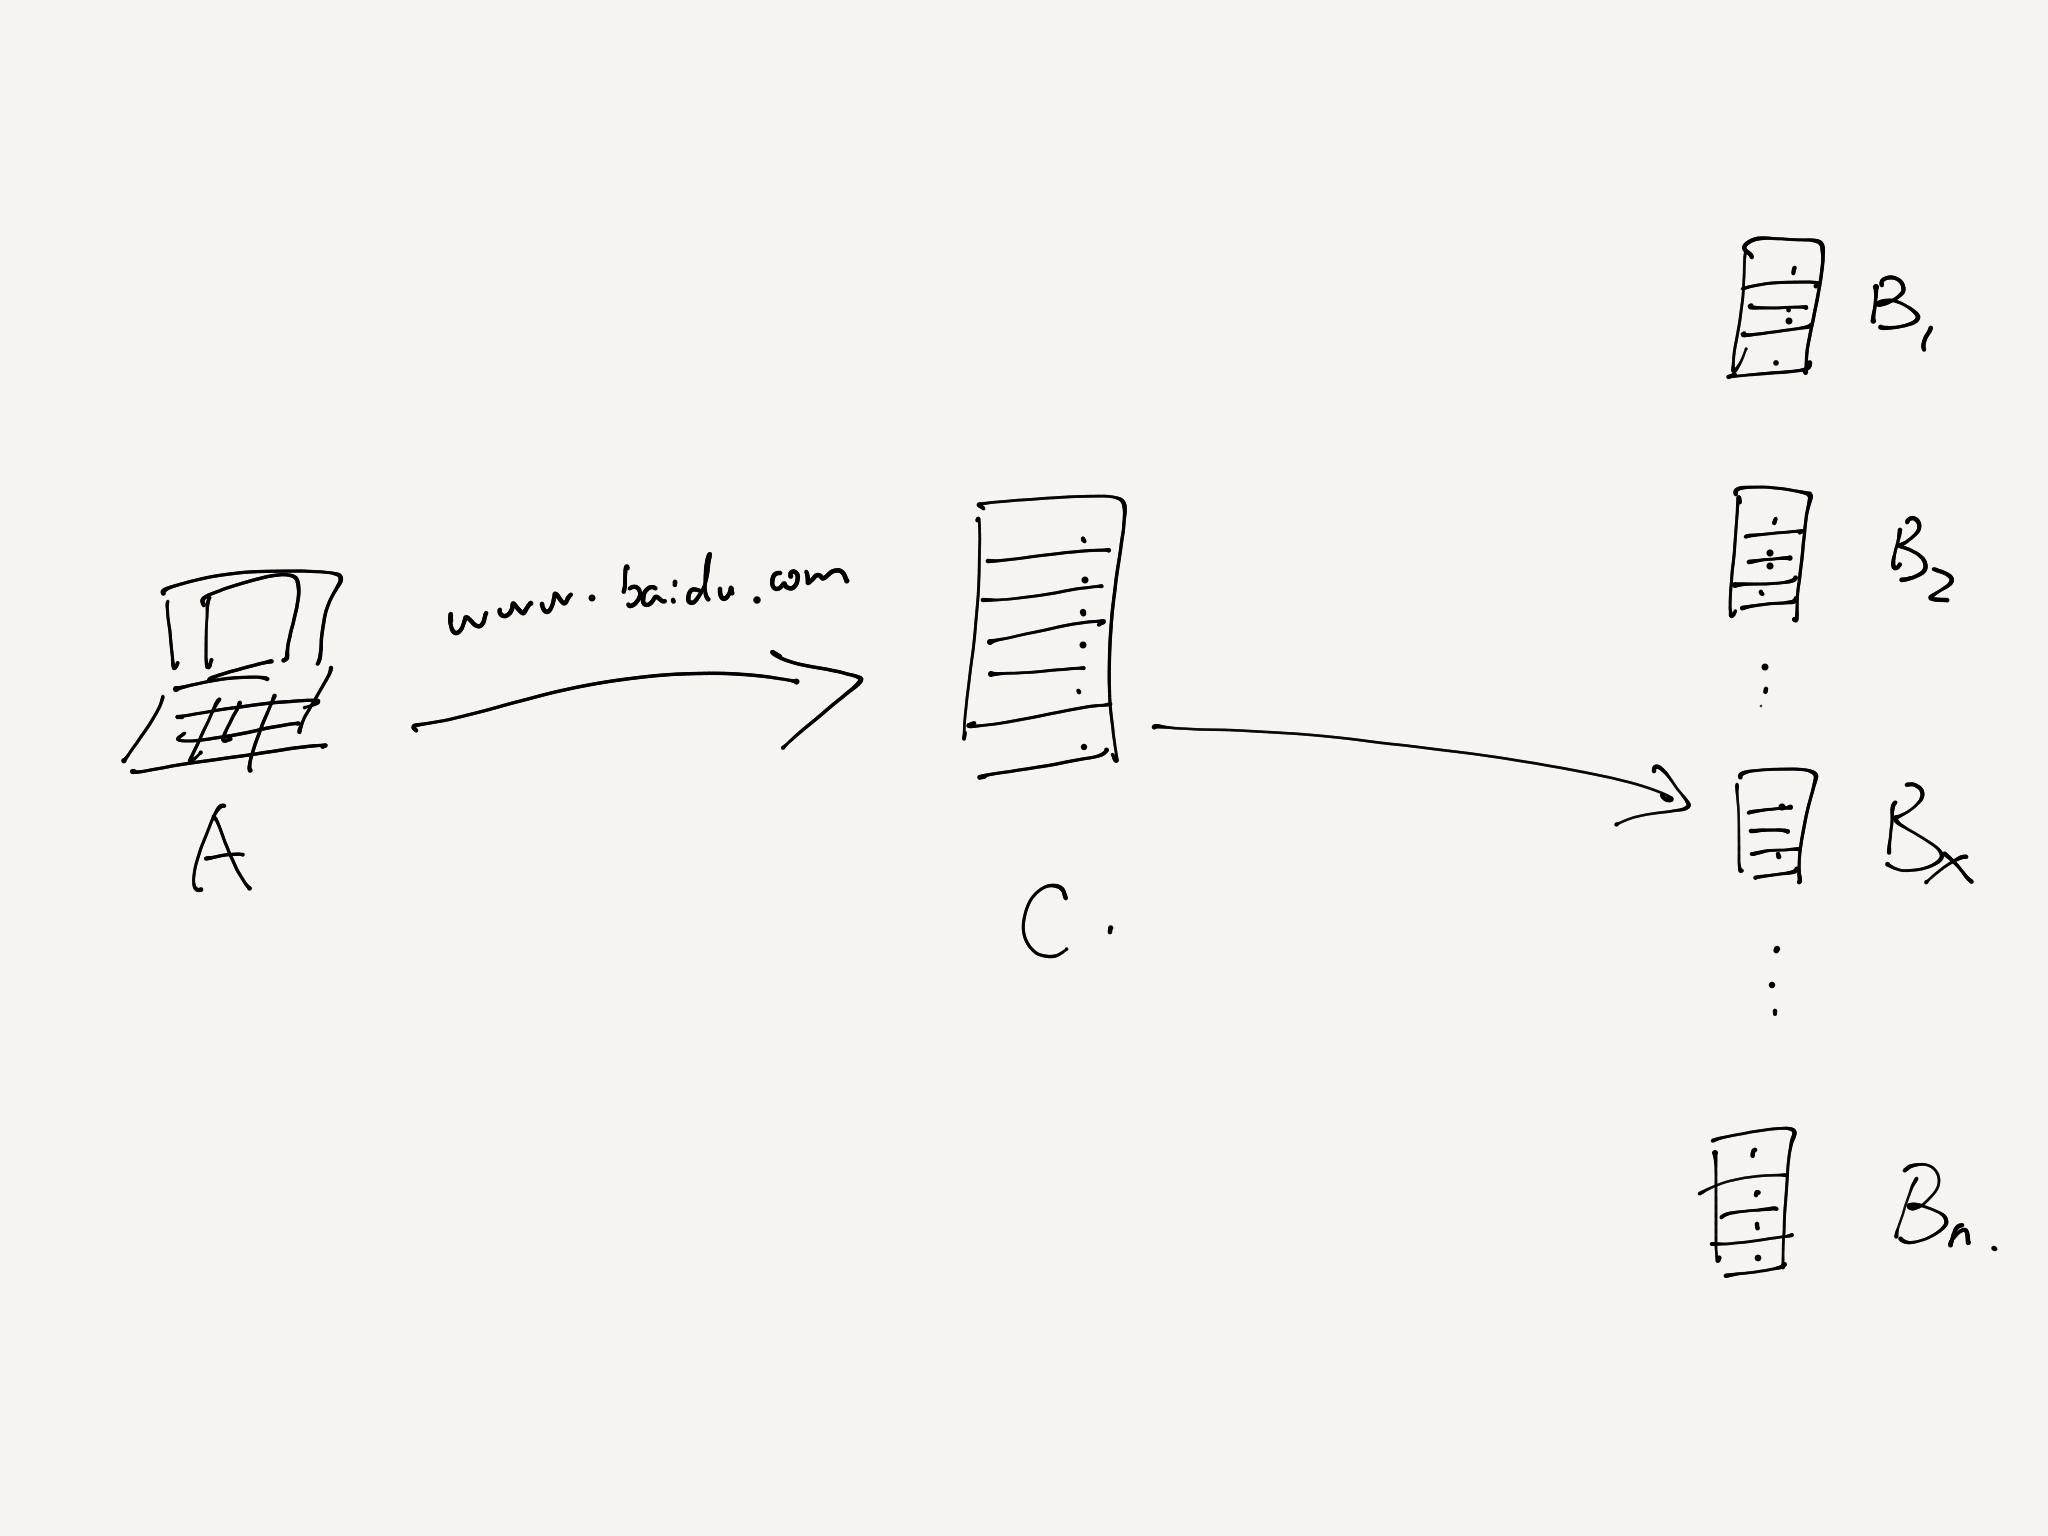 www.baidu.com
A
C.
B1
B2
Bx
Bn.